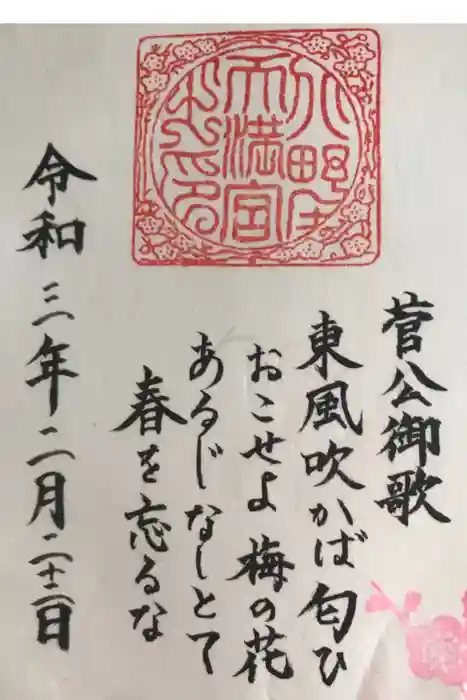 天満宮
之印
菅公御歌
東風吹かば匂ひ
おこせよ 梅の花
あるじなしとて
春を忘るな
令和三年二月二十二日